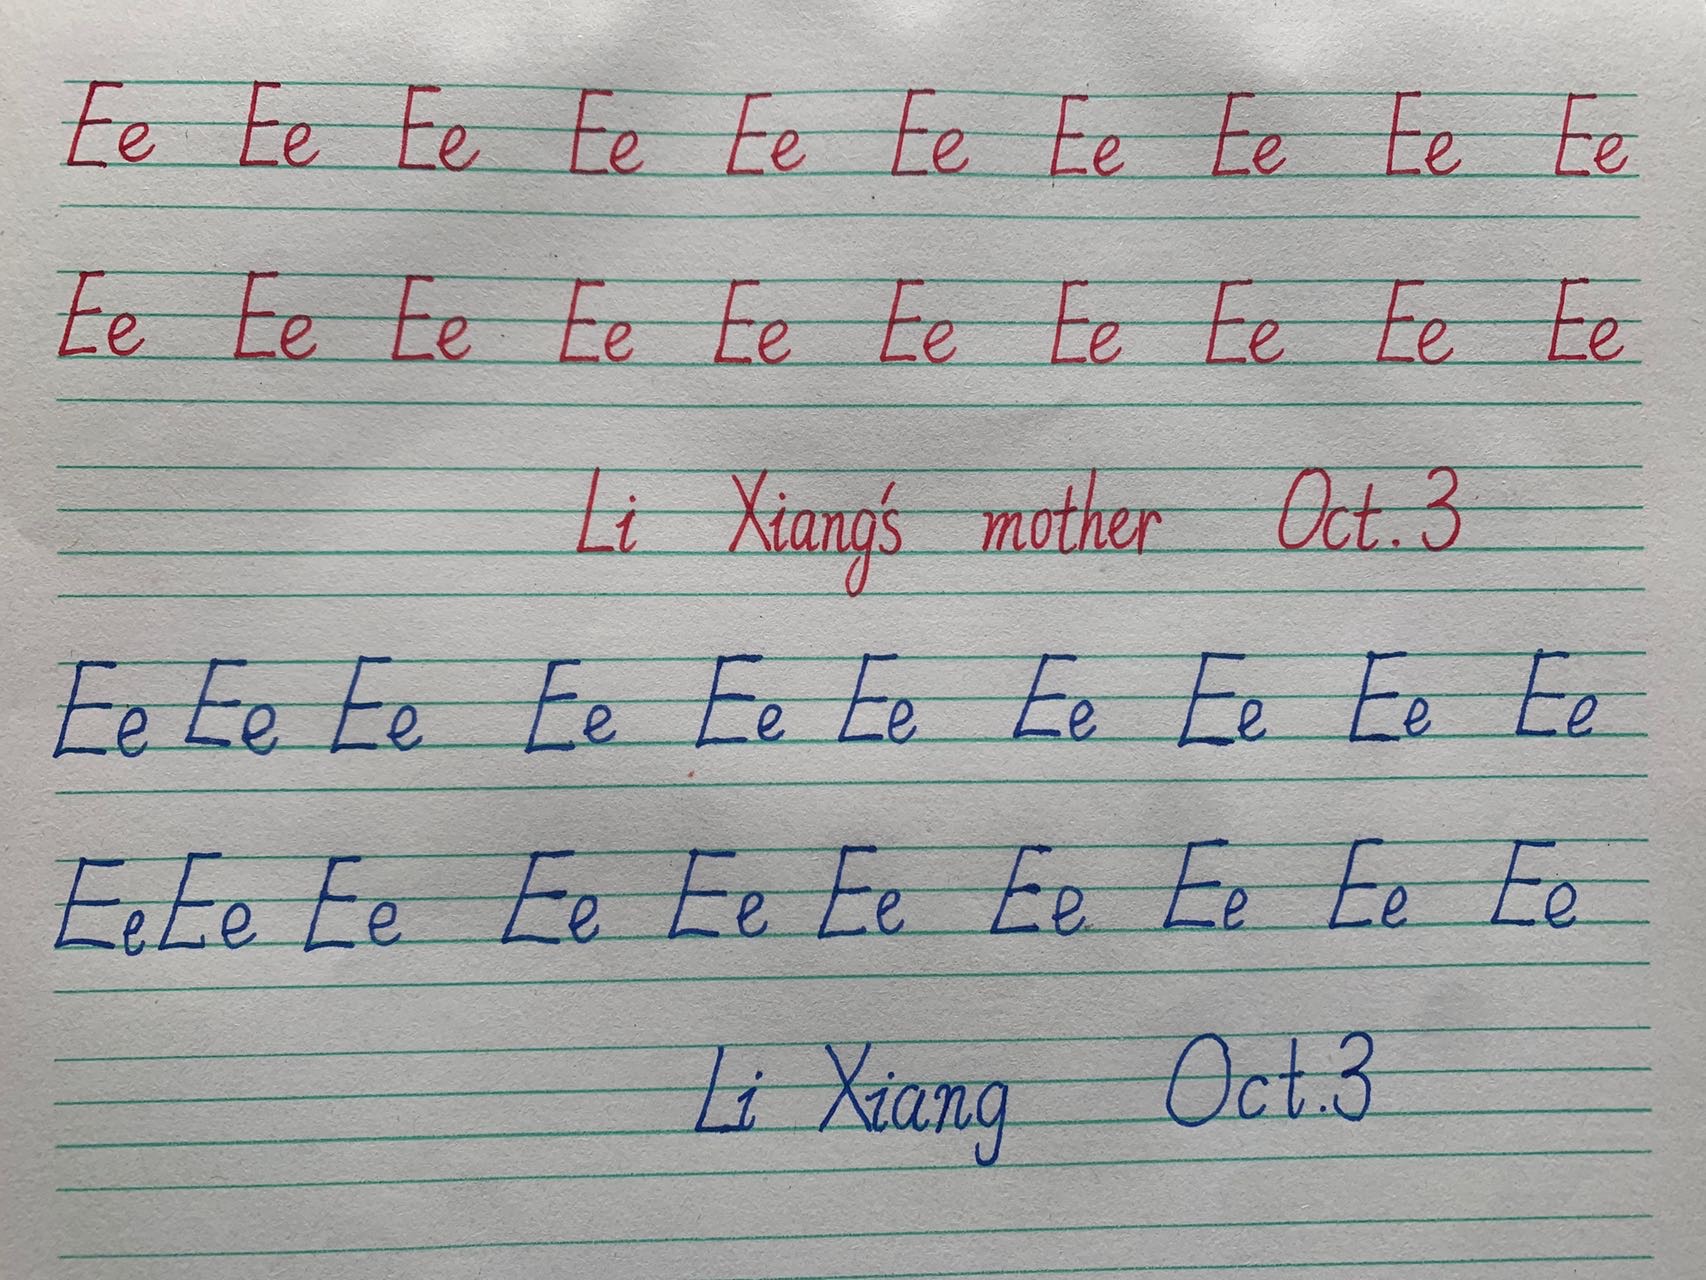 Ee Ee Ee Ee Ee Ee Ee Ee Ee Ee
Ee Ee Ee Ee Ee Ee Ee Ee Ee Ee
Li Xiang's mother Oct. 3
Ee Ee Ee Ee Ee Ee Ee Ee Ee Ee
Ee Ee Ee Ee Ee Ee Ee Ee Ee Ee
Li Xiang Oct.3